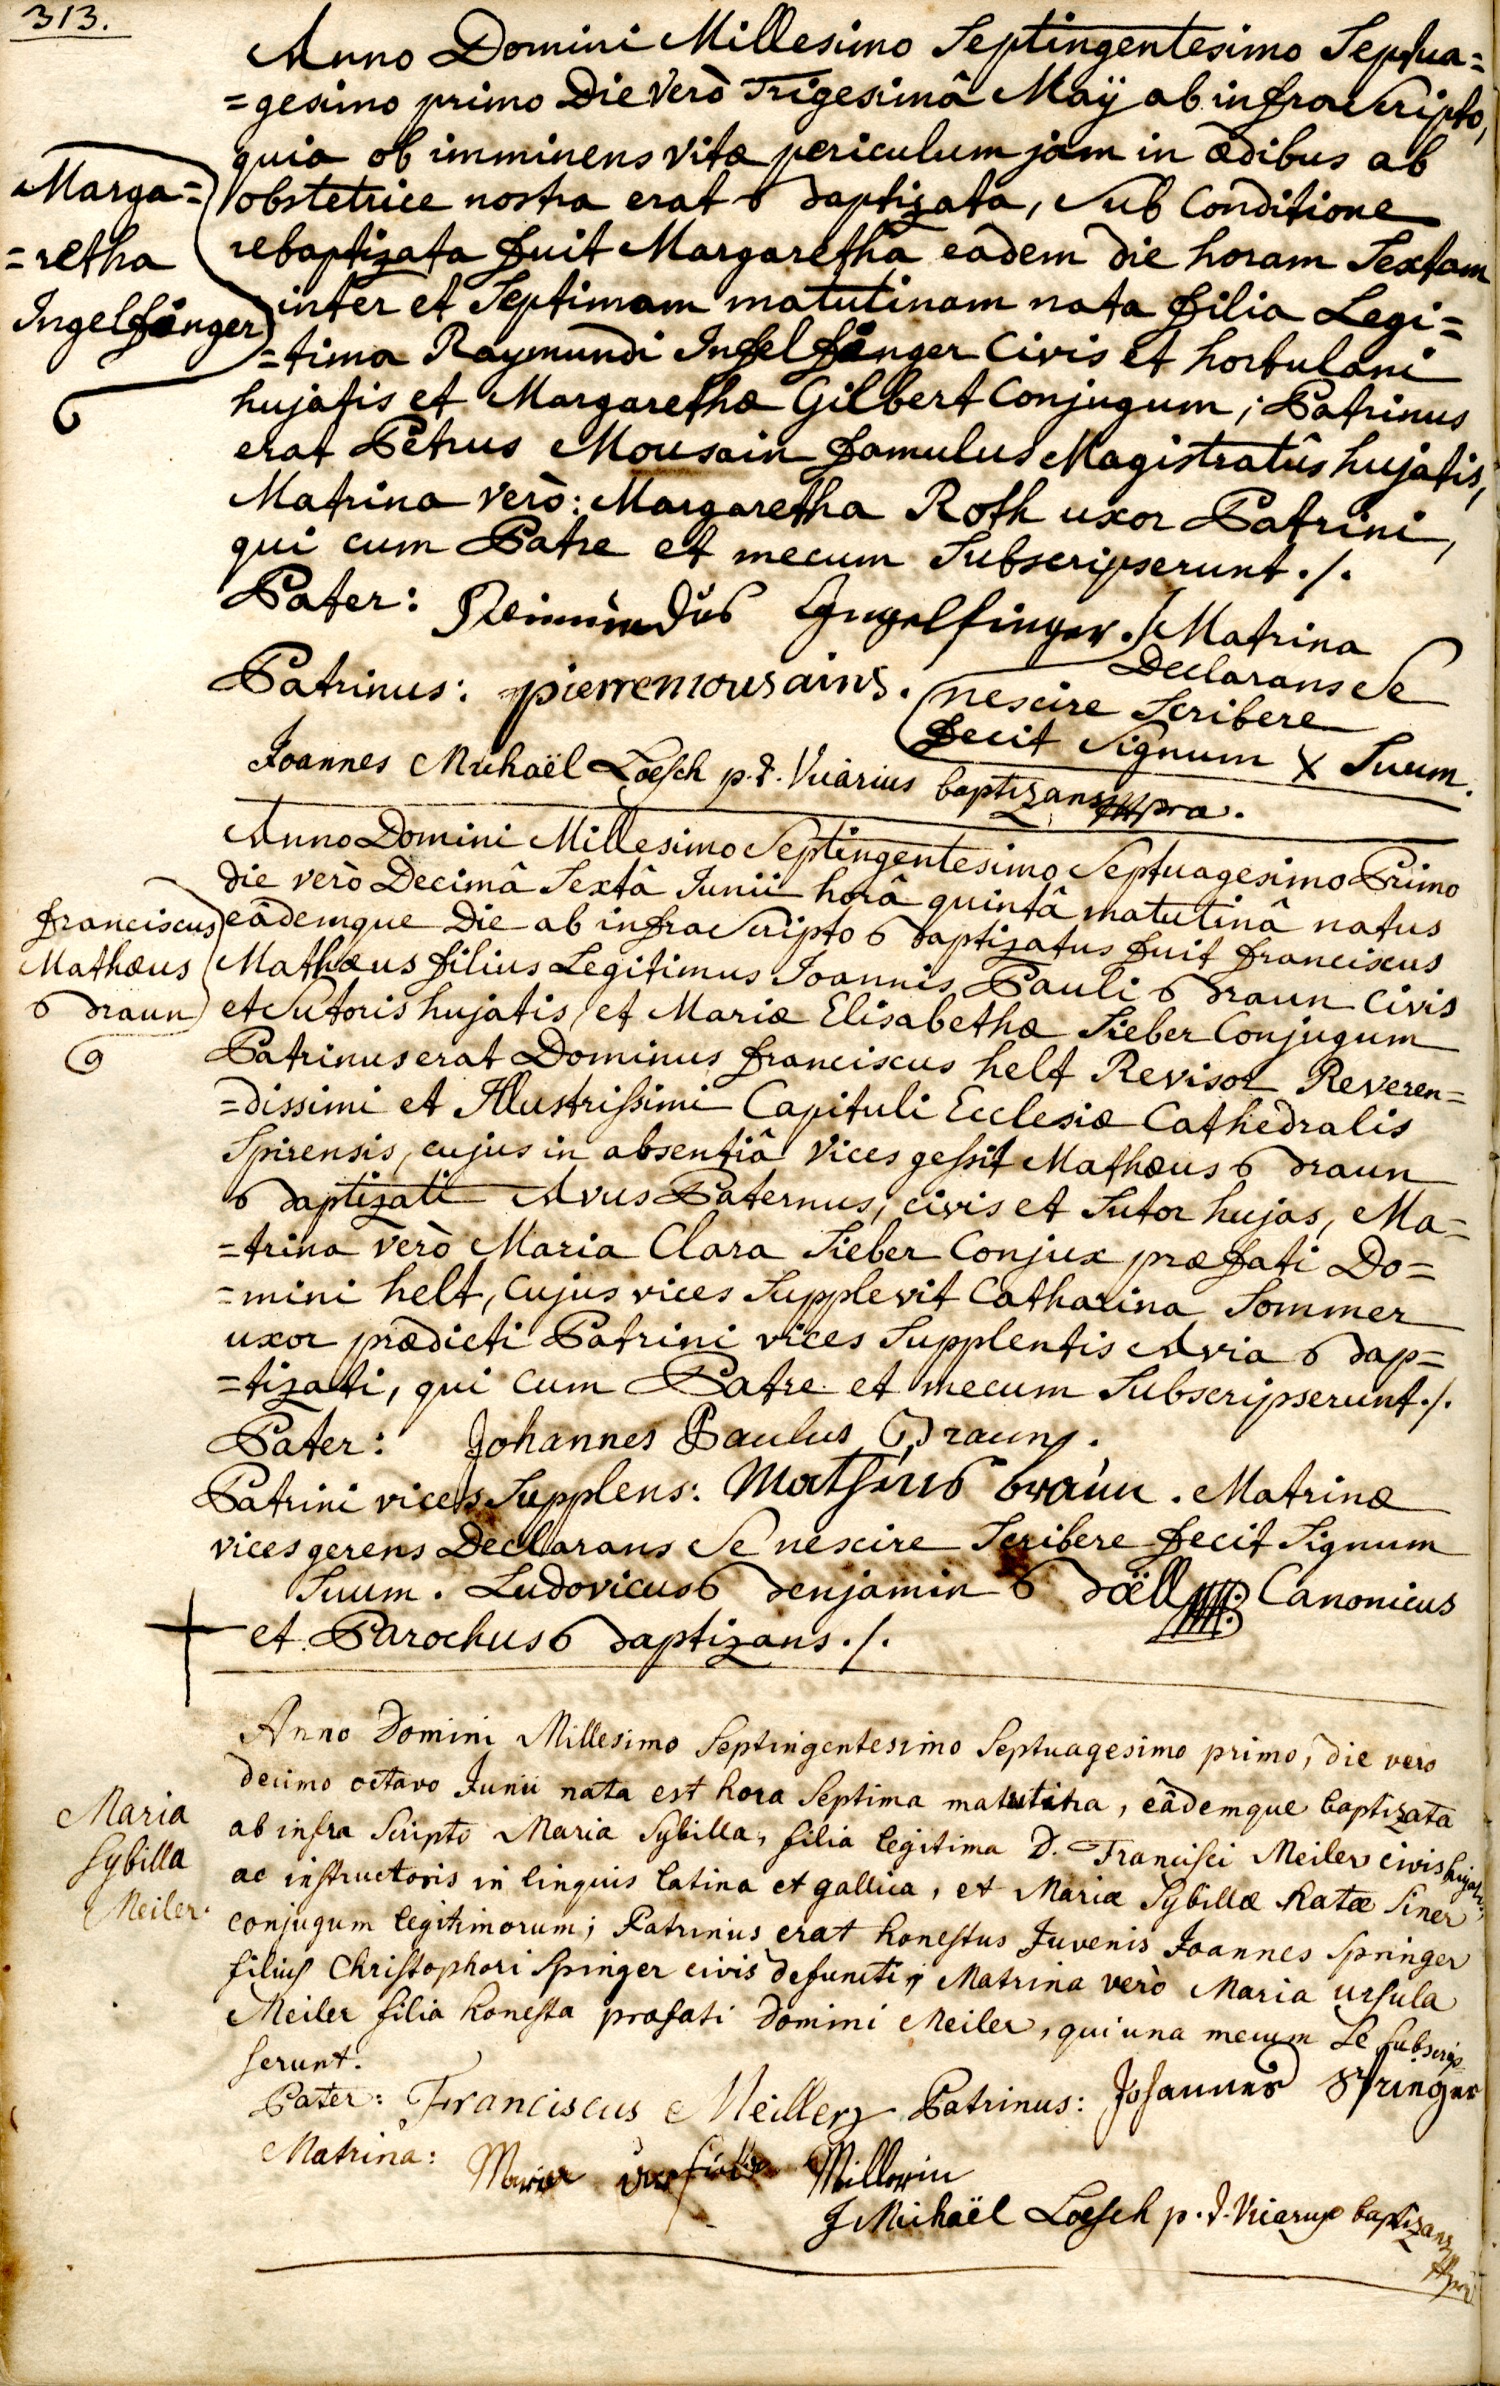 313.
Anno Domini Millesimo Septingentesimo Septua=
=gesimo primo Die verò Trigesimâ Maÿ ab infrascripto,
quia ob imminens vitæ periculum jam in ædibus ab
obstetrice nostra erat baptizata, sub Conditione
rebaptizata fuit Margaretha eâdem die horam Sextam
inter et Septimam matutinam nata filia Legi=
=tima Raymundi Ingelfinger Civis et hortulani
hujatis et Margarethæ Gilbert Conjugum; Patrinus
erat Petrus Mousain famulus Magistratûs hujatis,
Matrina verò: Margaretha Roth uxor Patrini,
qui cum Patre et mecum Subscripserunt ./.
Marga=
=retha
Ingelfinger
Pater: Reimundus Ingelfinger. Matrina
Declarans Se
Patrinus: pierre mousains. nescire Scribere
fecit Signum X Suum.
Joannes Michaël Loesch p.t. Vicarius baptizans mpra.
Anno Domini Millesimo Septingentesimo Septuagesimo Primo
die verò Decimâ Sextâ Junii horâ quintâ matutinâ natus
eâdemque Die ab infrascripto baptizatus fuit franciscus
Mathæus filius Legitimus Joannis Pauli braun Civis
et Sutoris hujatis, et Mariæ Elisabethæ Sieber Conjugum
Patrinus erat Dominus franciscus helt Revisor Reveren=
=dissimi et Illustrissimi Capituli Ecclesiæ Cathedralis
Spirensis, cujus in absentiâ Vices gessit Mathæus braun
baptizati Avus Paternus, civis et Sutor hujas, Ma=
=trina verò Maria Clara Sieber Conjux præfati Do=
=mini helt, Cujus vices Supplevit Catharina Sommer
uxor prædicti Patrini vices Supplentis Avia bap=
=tizati, qui cum Patre et mecum Subscripserunt ./.
franciscus
Mathæus
braun
Pater: Johannes Paulus Braun.
Patrini vices Supplens: Matheus braun. Matrinæ
vices gerens Declarans Se nescire Scribere fecit Signum
Suum. Ludovicus benjamin böell Canonicus
et Parochus baptizans ./.
Anno Domini Millesimo Septingentesimo Septuagesimo primo, die vero
decimo octavo Junii nata est hora Septima matutina, eâdemque baptizata
ab infra Scripto Maria Sybilla, filia legitima D. Francisci Meiler civis hujatis,
ac instructoris in linguis latina et gallica, et Mariæ Sybillæ Ratæ Siner
conjugum legitimorum; Patrinus erat honestus Juvenis Joannes Springer
filius Christophori Spinger civis defuncti, Matrina verò Maria ursula
Meiler filia honesta præfati Domini Meiler, qui una mecum Se Subscrip
serunt.
Maria
Sybilla
Meiler.
Pater: Franciscus Meiller Patrinus: Johannes Springer
Matrina: Maria Millerin
J Michaël Loesch p.t. Vicarius baptizans mpria